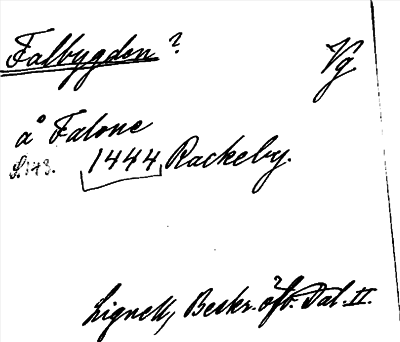 Falbygden ? Vg
å Falone
S. 143. 1444 Rackeby.
Lignell, Beskr. öfv. Dal. II.